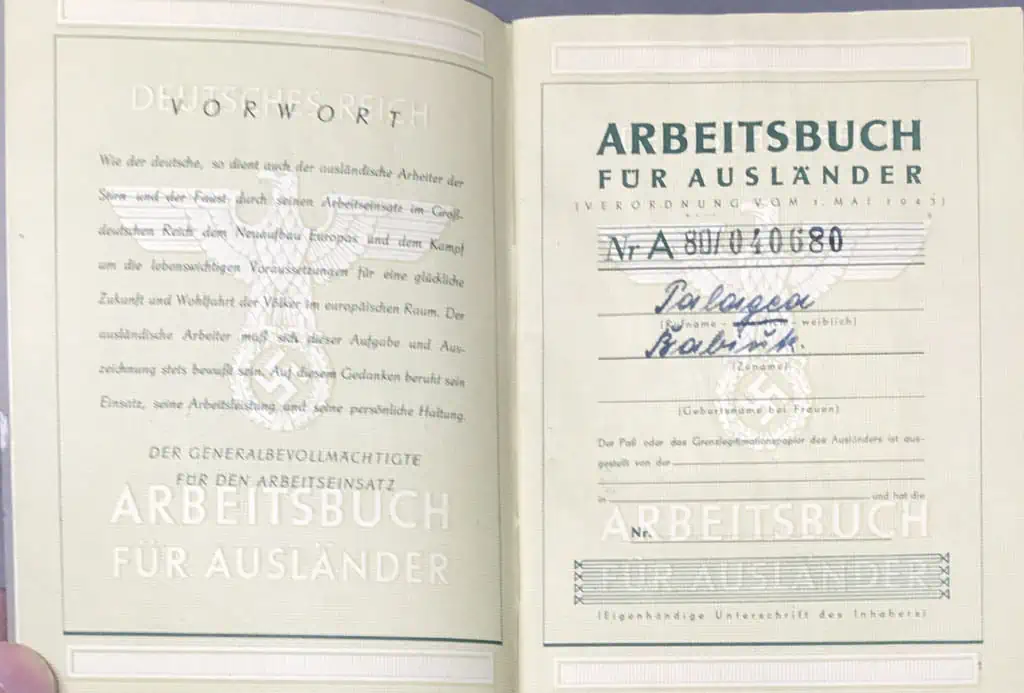 DEUTSCHES REICH
VORWORT
Wie der deutsche, so dient auch der ausländische Arbeiter der
Stirn und der Faust durch seinen Arbeitseinsatz im Groß-
deutschen Reich dem Neuaufbau Europas und dem Kampf
um die lebenswichtigen Voraussetzungen für eine glückliche
Zukunft und Wohlfahrt der Völker im europäischen Raum. Der
ausländische Arbeiter muß sich dieser Aufgabe und Aus-
zeichnung stets bewußt sein. Auf diesem Gedanken beruht sein
Einsatz, seine Arbeitsleistung und seine persönliche Haltung.
DER GENERALBEVOLLMÄCHTIGTE
FÜR DEN ARBEITSEINSATZ
ARBEITSBUCH
FÜR AUSLÄNDER
ARBEITSBUCH
FÜR AUSLÄNDER
(VERORDNUNG VOM 1. MAI 1943)
Nr A 80/040680
Palagea
(Rufname - - weiblich)
Babiuk.
(Zuname)
(Geburtsname bei Frauen)
Der Paß oder das Grenzlegitimationspapier des Ausländers ist aus-
gestellt von der
in und hat die
ARBEITSBUCH
Nr.
FÜR AUSLÄNDER
(Eigenhändige Unterschrift des Inhabers)
1